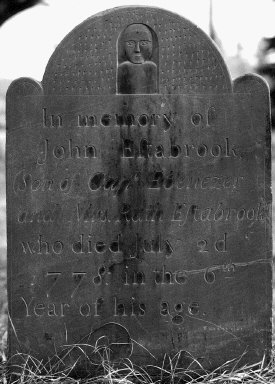 In memory of
John Eſtabrook,
(Son of Capt. Ebenezer
and Mrs. Ruth Eſtabrook
who died July 2d
778. in the 6th
Year of his age.